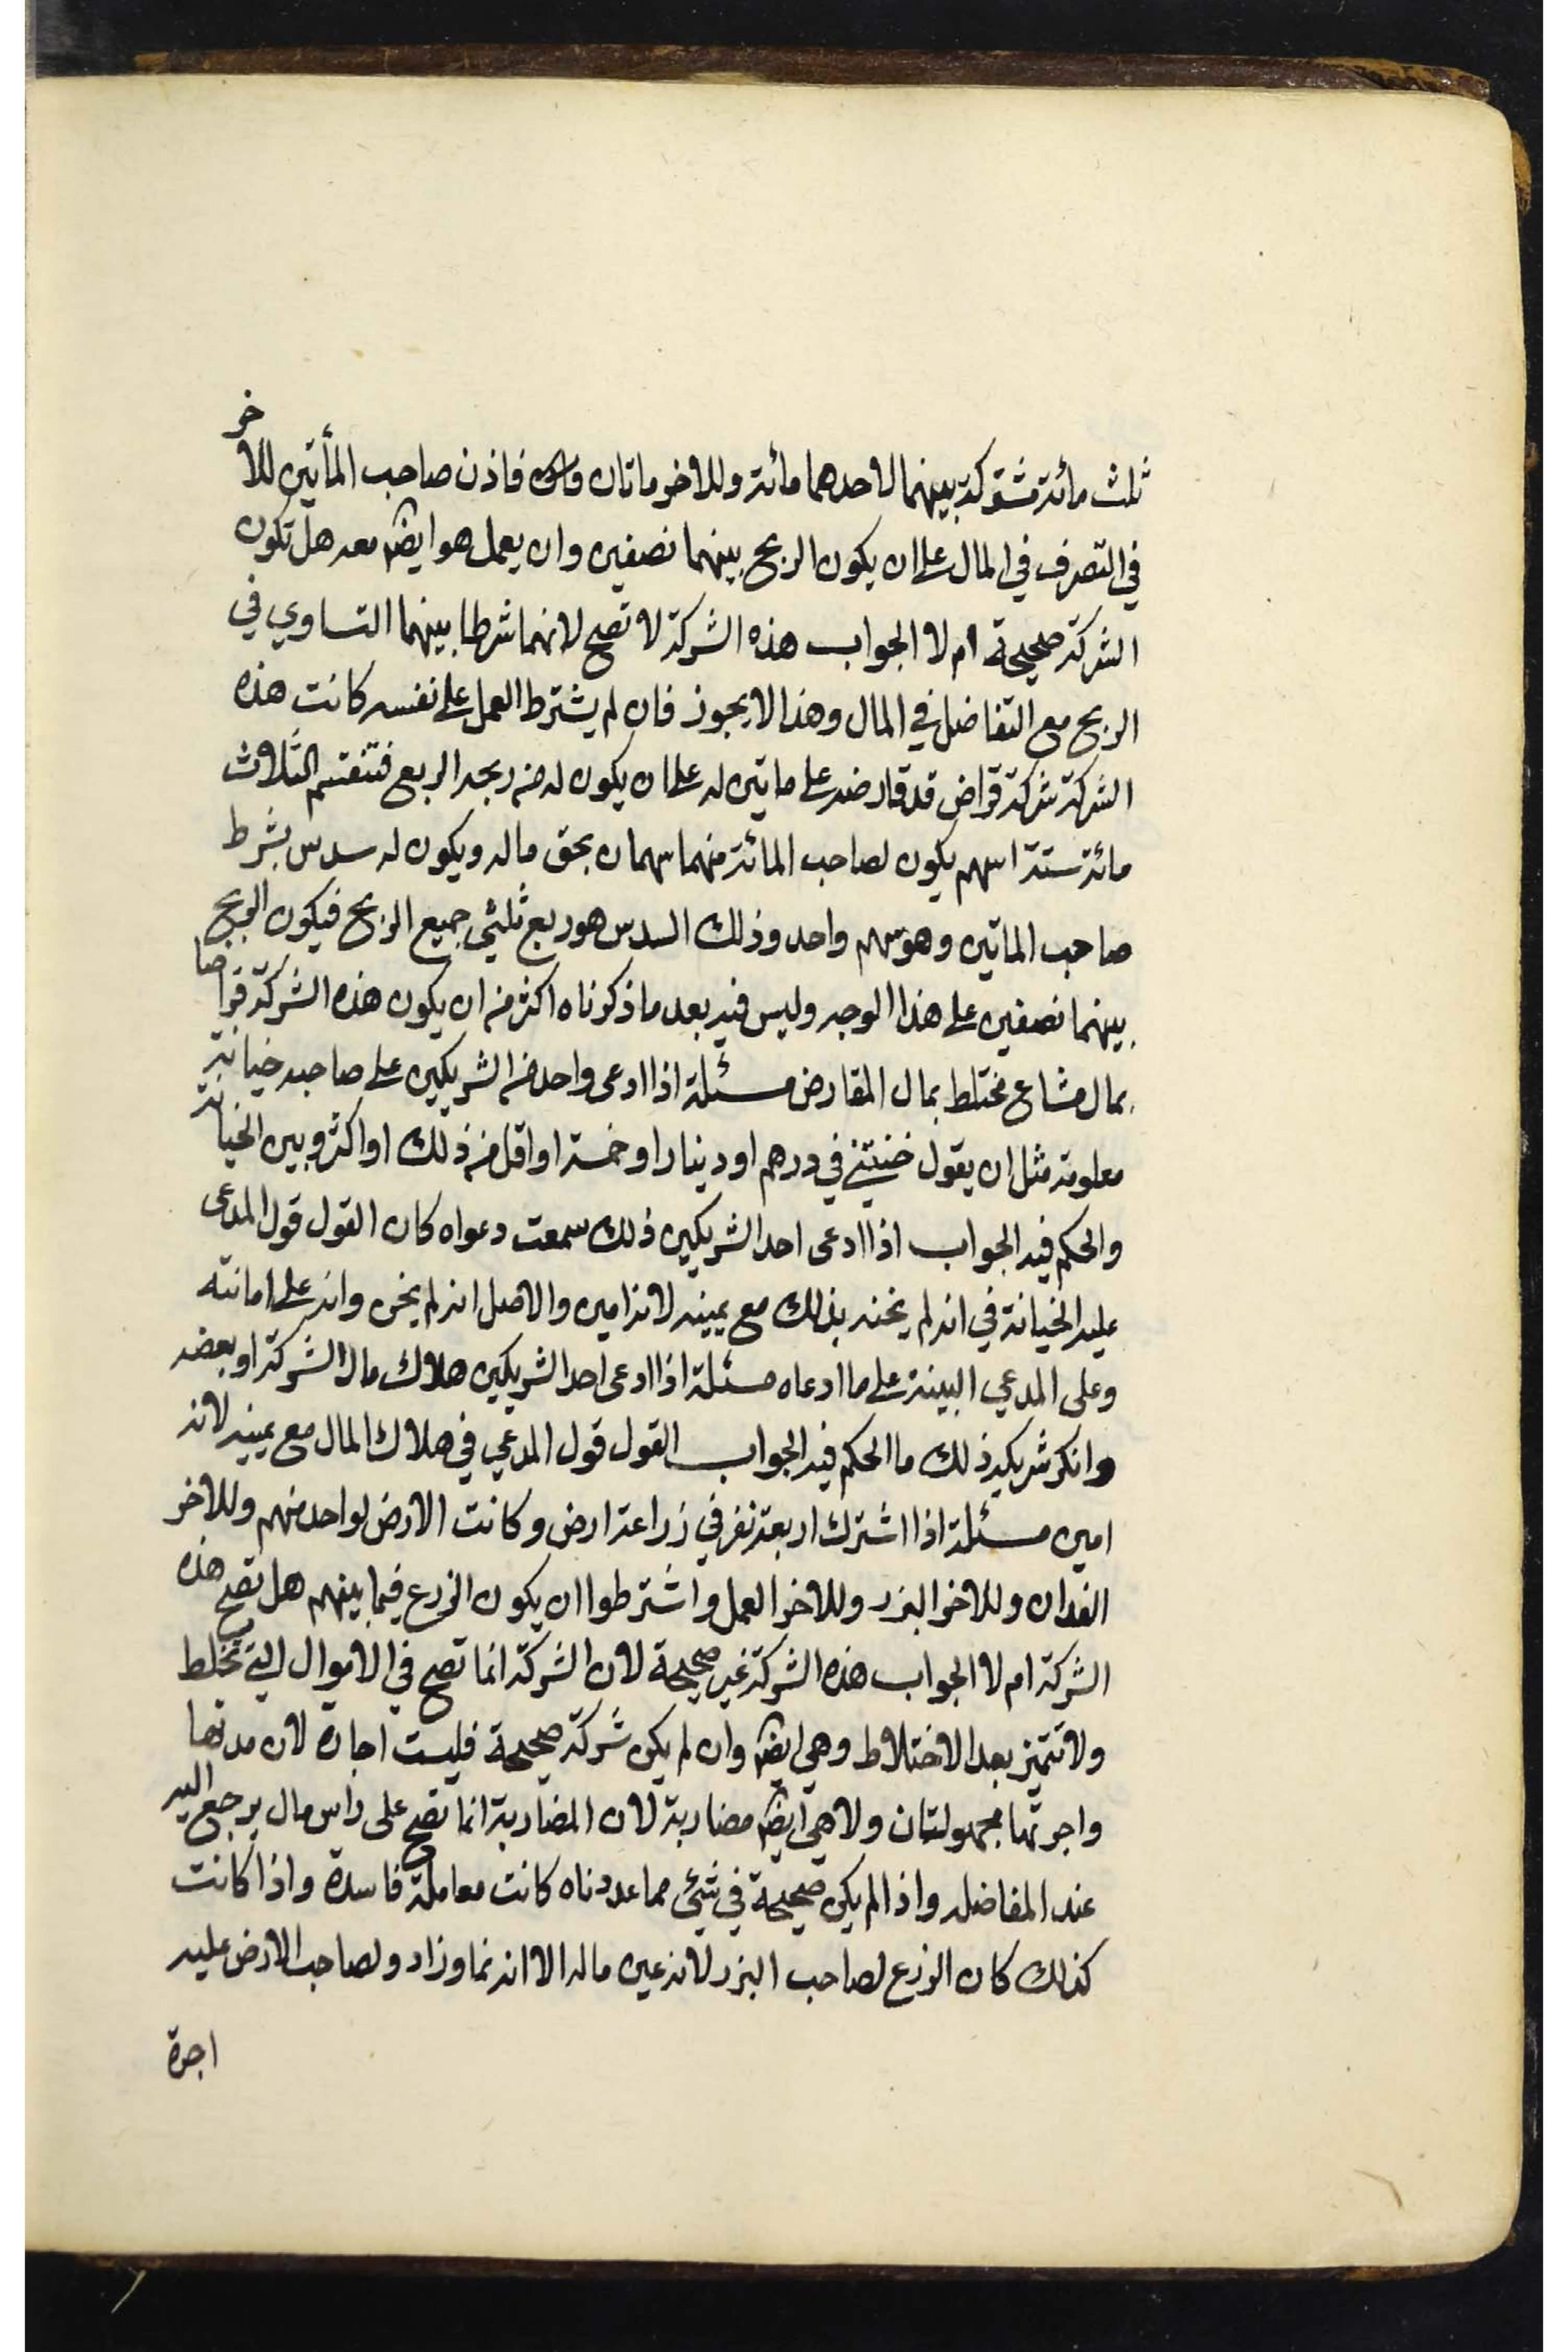 ثلث مائة مشتركة بينهما لاحدهما مائة وللاخر ماتان فاذن صاحب المأتين للاخر
في التصرف في المال على ان يكون الربح بينهما نصفين وان يعمل هو ايضا معه هل تكون
الشركة صحيحة ام لا الجواب هذه الشركة لا تصح لانهما شرطا بينهما التساوي في
الربح مع التفاضل في المال وهذا لا يجوز فان لم يشترط العمل على نفسه كانت هذه
الشركة شركة قراض قد قارضه على ماتين له على ان يكون له من ربحه الربع فتنقسم الثلاث
مائة ستة اسهم يكون لصاحب المائة منهما سهمان بحق ماله ويكون له سدس بشرط
صاحب الماتين وهو سهم واحد وذلك السدس هو ربع ثلثي جميع الربح فيكون الربح
بينهما نصفين على هذا الوجه وليس فيه بعد ما ذكرناه اكثر من ان يكون هذه الشركة قراضا
بمال مشاع مختلط بمال المقارض مسئلة اذا ادعى واحد من الشريكين على صاحبه خيانة
معلومة مثل ان يقول خنتني في درهم او دينار او خمسة او اقل من ذلك او اكثر وبين الخيانة
والحكم فيه الجواب اذا ادعى احد الشريكين ذلك سمعت دعواه كان القول قول المدعى
عليه الخيانة في انه لم يخنه بذلك مع يمينه لانه امين والاصل انه لم يخن وانه على امانته
وعلى المدعي البينة على ما ادعاه مسئلة اذا ادعى احد الشريكين هلاك مال الشركة او بعضه
وانكر شريكه ذلك ما الحكم فيه الجواب القول قول المدعي في هلاك المال مع يمينه لانه
امين مسئلة اذا اشترك اربعة نفر في زراعة ارض وكانت الارض لواحد منهم وللاخر
الفدان وللاخر البزر وللاخر العمل واشترطوا ان يكون الزرع فيما بينهم هل تصح هذه
الشركة ام لا الجواب هذه الشركة غير صحيحة لان الشركة انما تصح في الاموال التي تختلط
ولا تتميز بعد الاختلاط وهي ايضا وان لم يكن شركة صحيحة فليست اجارة لان مدتها
واجرتها مجهولتان ولا هي ايضا مضاربة لان المضاربة انما تصح على راس مال يرجع اليه
عند المفاضله واذا لم يكن صحيحة في شئ مما عددناه كانت معاملة فاسدة واذا كانت
كذلك كان الزرع لصاحب البزر لانه عين ماله الا انه نما وزاد ولصاحب الارض عليه
اجرة